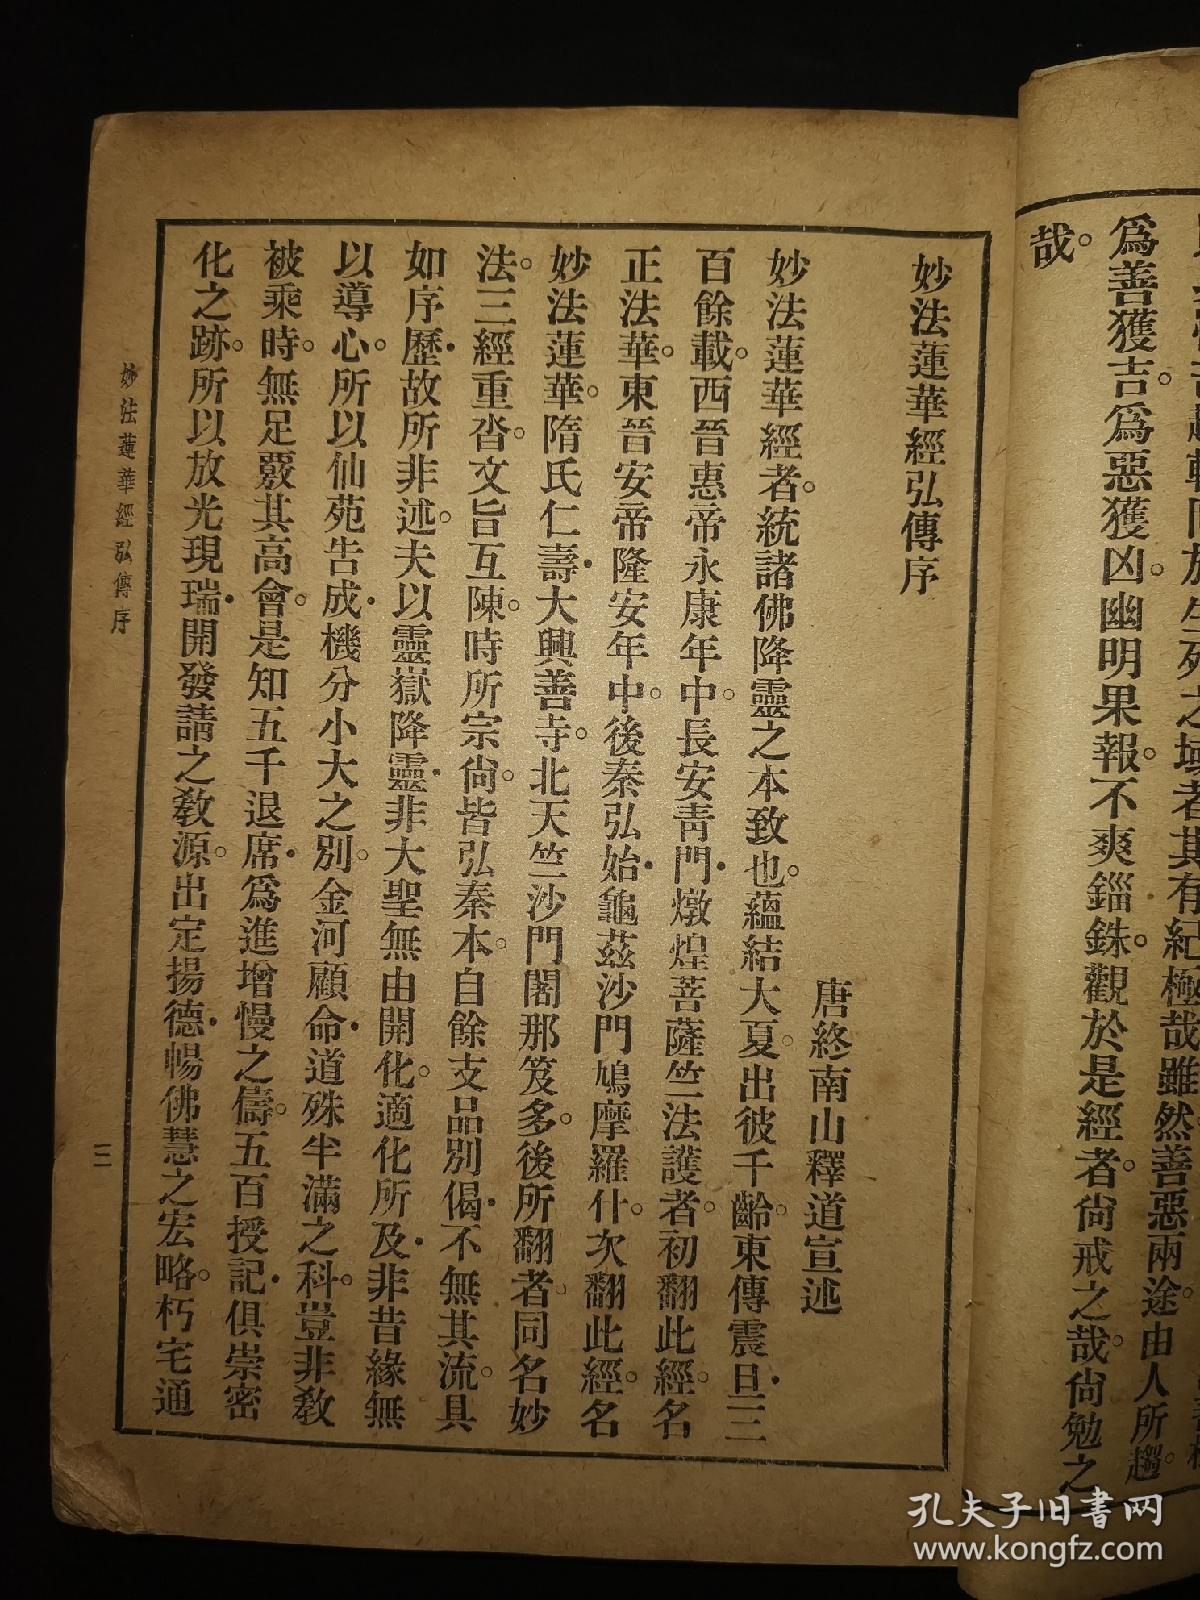 生死之域者其有紀極哉雖然善惡兩途。由人所趨。
爲善獲吉。爲惡獲凶。幽明果報。不爽錙銖。觀於是經者。尙戒之哉。尙勉之
哉。
妙法蓮華經弘傳序
唐終南山釋道宣述
妙法蓮華經者。統諸佛降靈之本致也。蘊結大夏。出彼千齡。東傳震旦。三
百餘載。西晉惠帝永康年中。長安靑門。燉煌菩薩竺法護者。初翻此經。名
正法華。東晉安帝隆安年中。後秦弘始。龜茲沙門鳩摩羅什。次翻此經。名
妙法蓮華。隋氏仁壽。大興善寺。北天竺沙門闍那笈多。後所翻者。同名妙
法。三經重沓。文旨互陳。時所宗尙。皆弘秦本。自餘支品別偈。不無其流。具
如序歷。故所非述。夫以靈嶽降靈。非大聖無由開化。適化所及。非昔緣無
以導心。所以仙苑吿成。機分小大之別。金河顧命。道殊半滿之科。豈非敎
被乘時。無足覈其高會。是知五千退席。爲進增慢之儔。五百授記。俱崇密
化之跡。所以放光現瑞。開發請之敎源。出定揚德。暢佛慧之宏略。朽宅通
妙法蓮華經弘傳序
三
孔夫子旧书网
www.kongfz.com